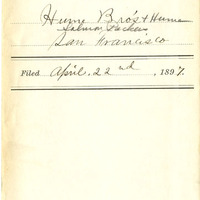 Hume Bro's & Hume
Salmon Packers
San Francisco
Filed April. 22nd, 1897.